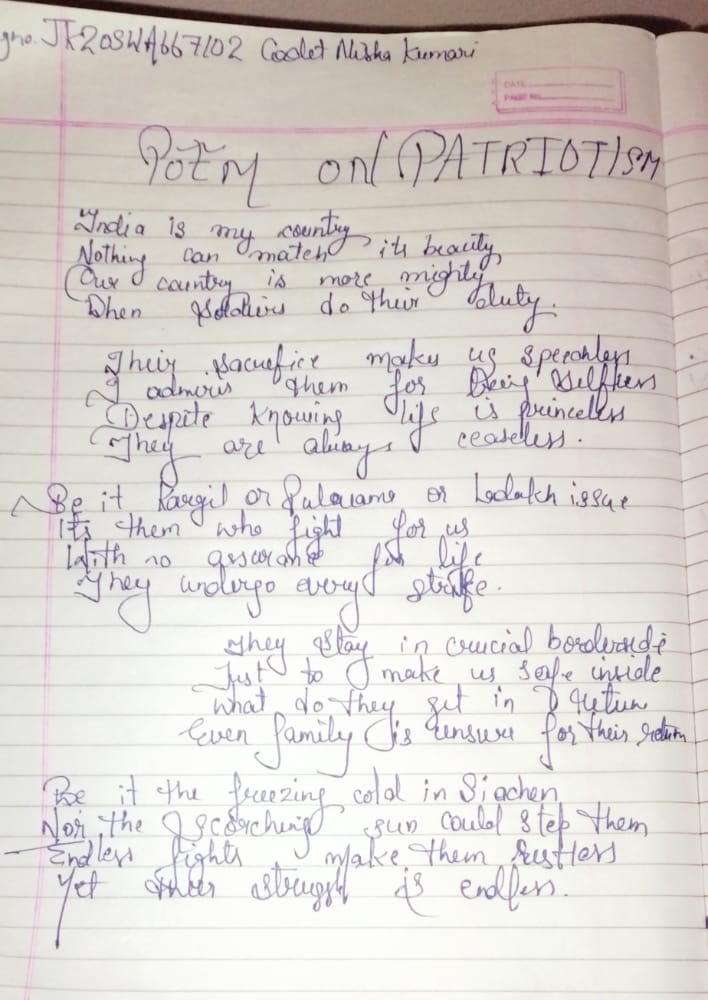 gno. JK20SWA667102 Cadet Nisha Kumari
DATE
PAGE NO.
POEM ON PATRIOTISM
India is my country
Nothing can match its beauty
Our country is more mighty
When soldiers do their duty.
Their sacrefice makes us speechless
I admire them for being selfless
Despite knowing life is princeless
They are always ceaseless.
Be it Kargil or Pulwama or Ladakh issue
Its them who fight for us
With no assurance for life
They undergo every strife.
They stay in crucial borderside
Just to make us safe inside
What do they get in return
Even family is unsure for their return
Be it the freezing cold in Siachen
Nor the scorching sun could stop them
Endless fights make them restless
Yet their struggle is endless.